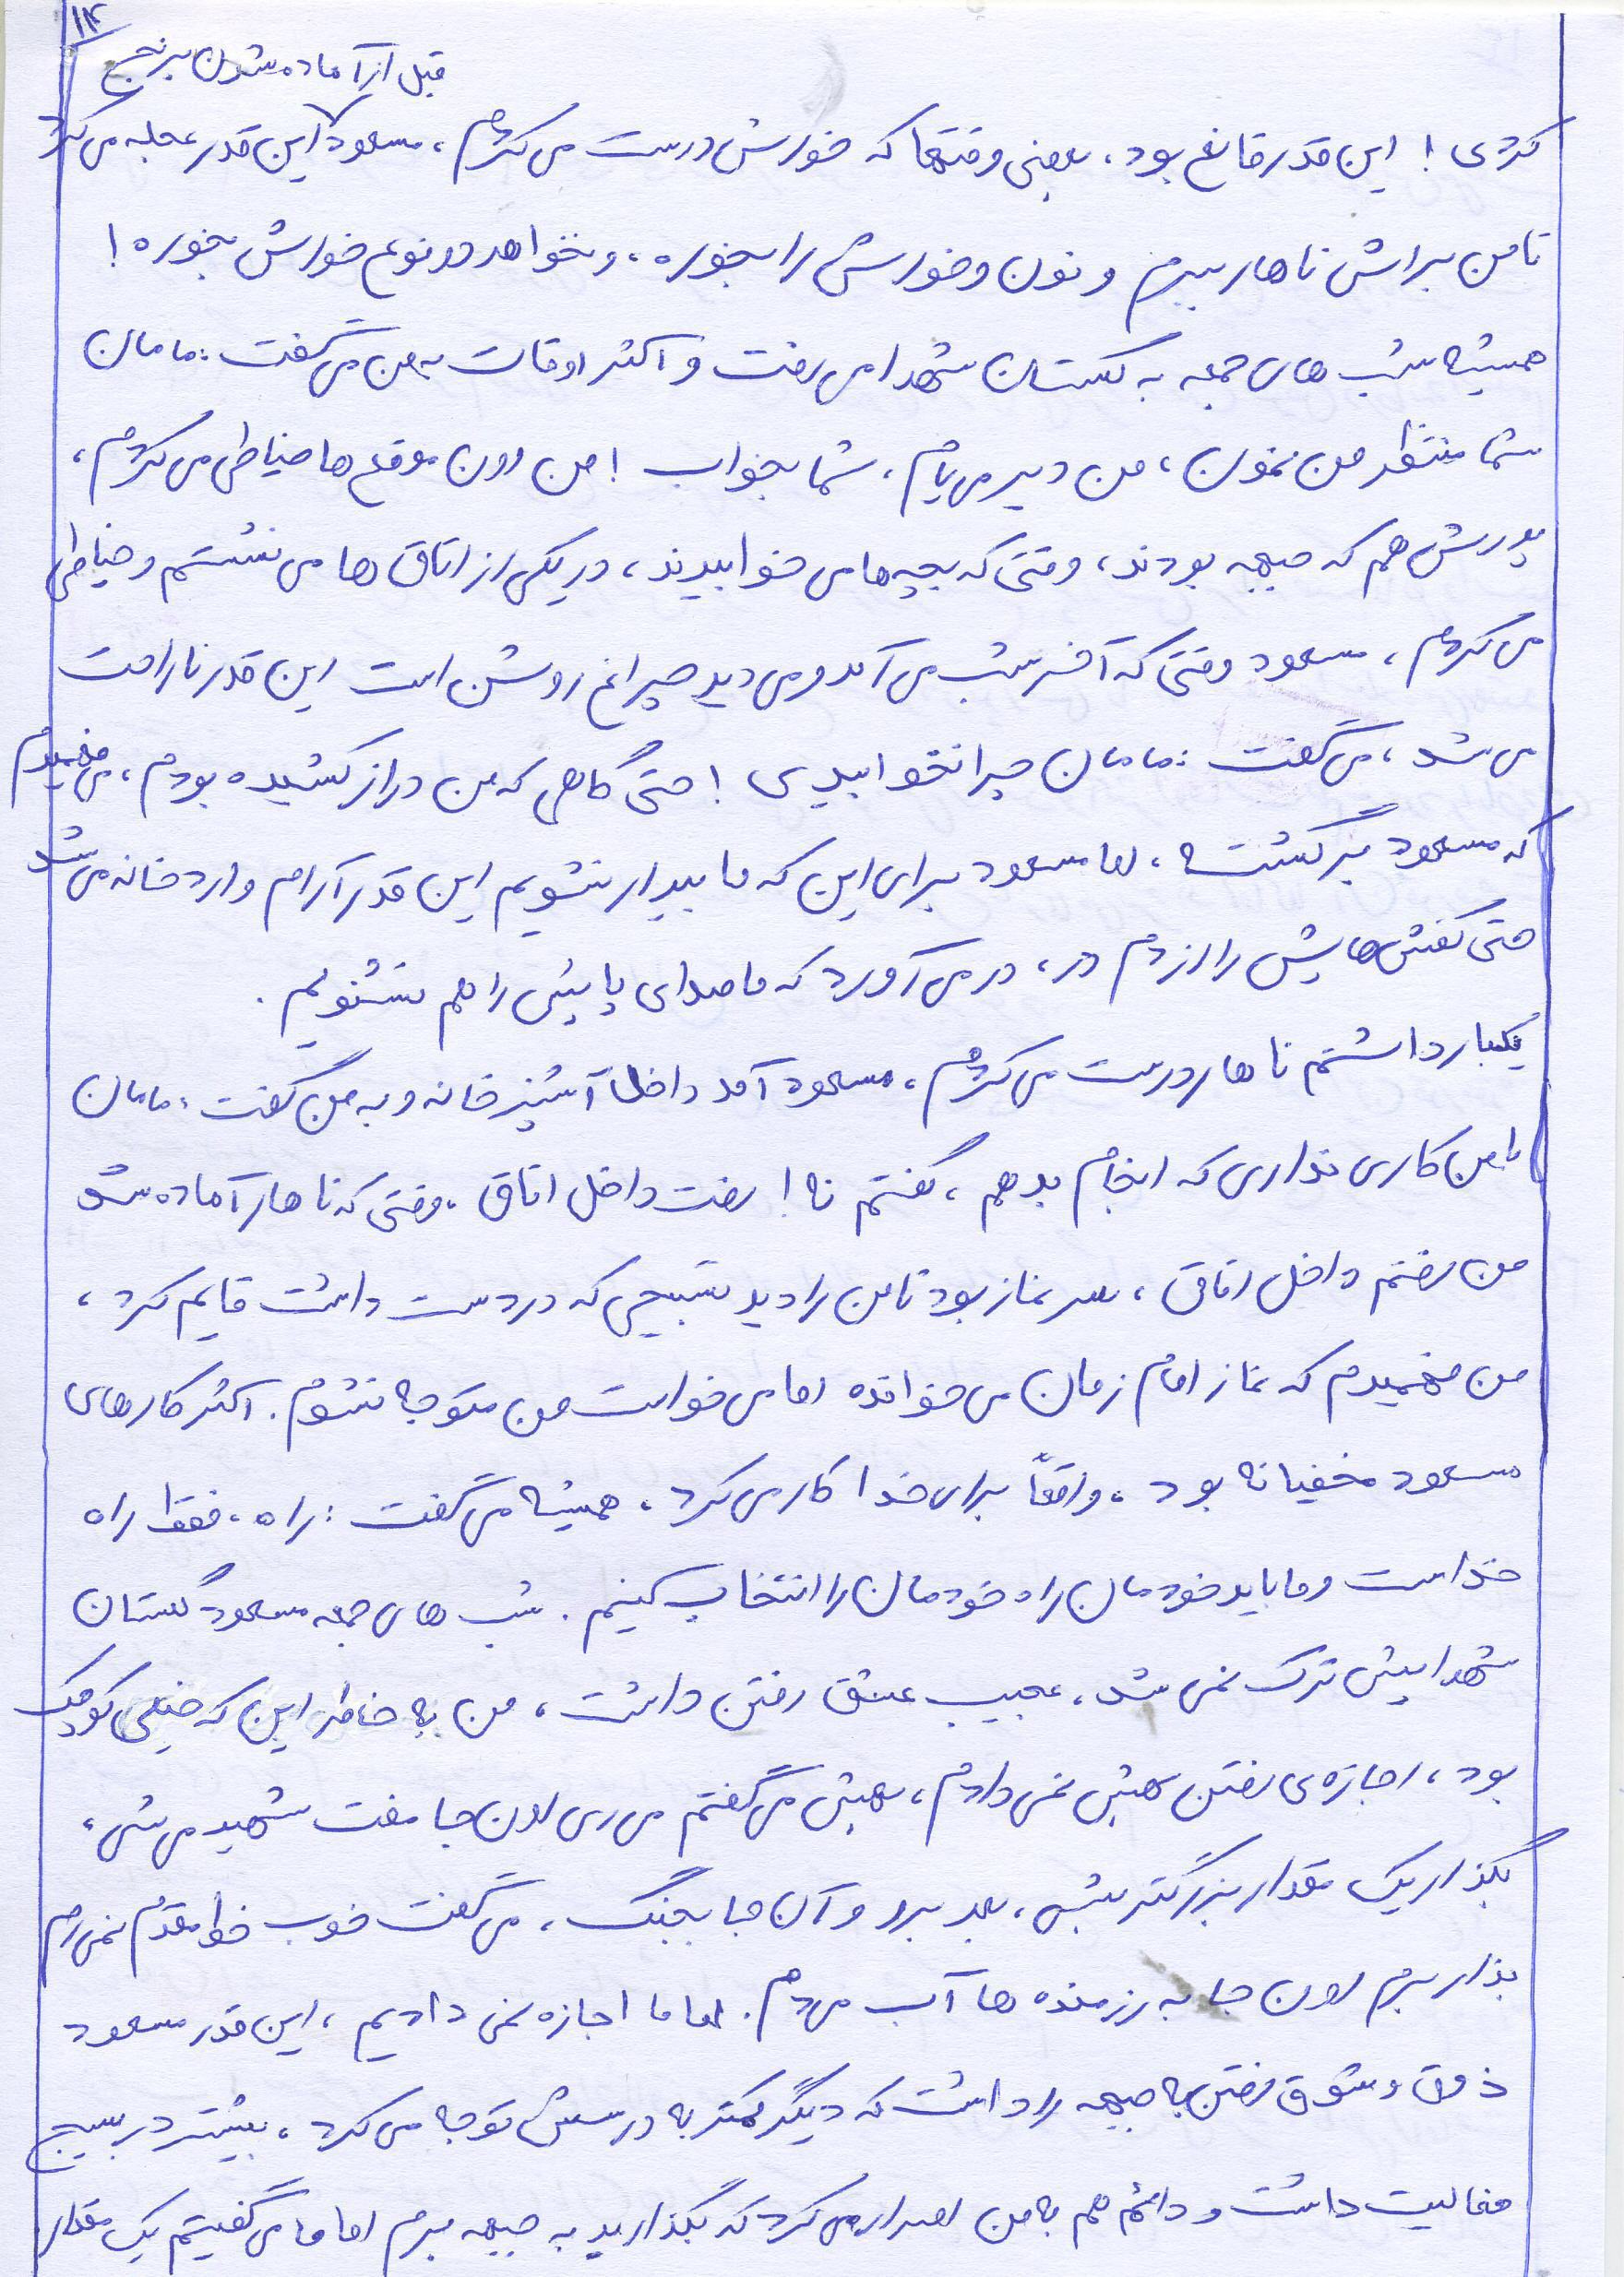 ۱۴
قبل از آماده شدن برنج
کردی ! این قدر قانع بود، بعضی وقتها که خورش درست می کردم ، مسعود این قدر عجله می کرد
تا من براش ناهار ببرم و نون و خورش را بخوره ، و نخواهد دو نوع خورش بخوره !
همیشه شب های جمعه به گلستان شهدا می رفت و اکثر اوقات به من می گفت : مامان
شما منتظر من نمون ، من دیر می یام ، شما بخواب ! من اون موقع ها خیاطی می کردم ،
پدرش هم که جبهه بودند ، وقتی که بچه ها می خوابیدند ، در یکی از اتاق ها می نشستم و خیاطی
می کردم ، مسعود وقتی که آخر شب می آمد و می دید چراغ روشن است این قدر ناراحت
می شد ، می گفت : مامان چرا نخوابیدی ! حتی گاهی که من دراز کشیده بودم ، می فهمیدم
که مسعود برگشته ، اما مسعود برای این که ما بیدار نشویم این قدر آرام وارد خانه می شد
حتی کفش هایش را از دم در ، در می آورد که ما صدای پایش را هم نشنویم .
یکبار داشتم ناهار درست می کردم ، مسعود آمد داخل آشپزخانه و به من گفت ، مامان
با من کاری نداری که انجام بدهم ، گفتم نه ! رفت داخل اتاق ، وقتی که ناهار آماده شد
من رفتم داخل اتاق ، سر نماز بود تا من را دید تسبیحی که در دست داشت قایم کرد ،
من فهمیدم که نماز امام زمان می خوانده اما می خواست من متوجه نشوم . اکثر کارهای
مسعود مخفیانه بود ، واقعاً برای خدا کار می کرد ، همیشه می گفت : راه ، فقط راه
خداست و ما باید خودمان راه خودمان را انتخاب کنیم . شب های جمعه مسعود گلستان
شهدایش ترک نمی شد ، عجیب عشق رفتن داشت ، من به خاطر این که خیلی کوچک
بود ، اجازه ی رفتن بهش نمی دادم ، بهش می گفتم می ری اون جا مفت شهید می شی ،
بگذار یک مقدار بزرگتر بشی ، بعد برو و آن جا بجنگ ، می گفت خوب خط مقدم نمی رم
بذار برم اون جا به رزمنده ها آب می دم . اما ما اجازه نمی دادیم ، این قدر مسعود
ذوق و شوق رفتن به جبهه را داشت که دیگر کمتر به درسش توجه می کرد ، بیشتر در بسیج
فعالیت داشت و دائم هم به من اصرار می کرد که بگذارید به جبهه برم اما ما می گفتیم یک مقدار